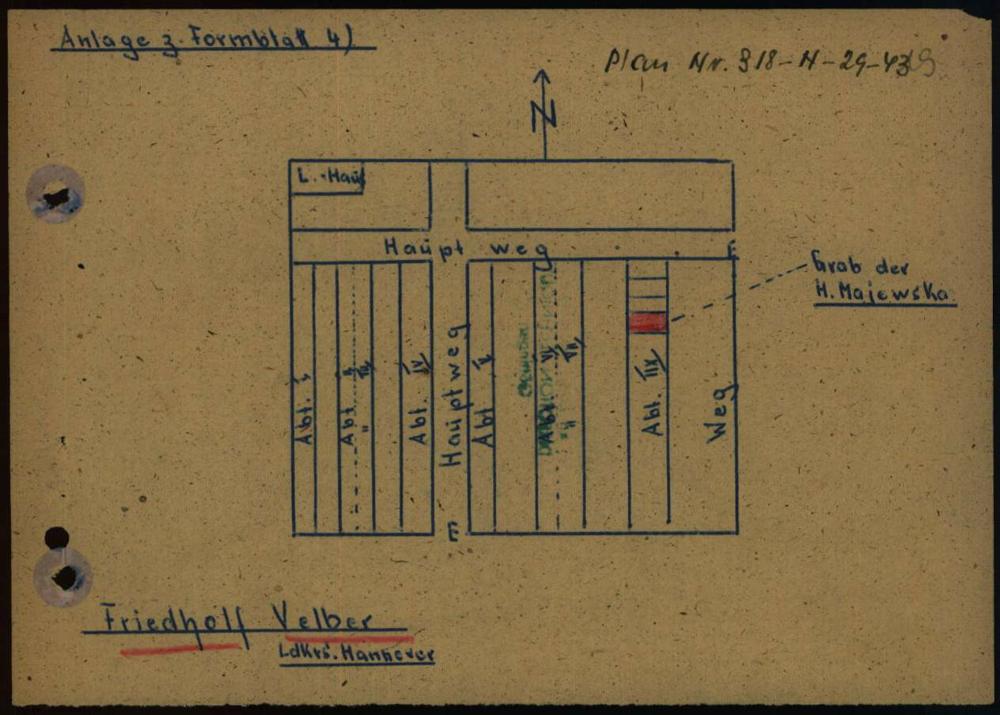 Anlage z. Formblatt 4)
Plan Nr. 318-H-29-43
N
L.-Haus
Hauptweg
E
Grab der
H. Majewska
Hauptweg
Abt. I
Abt. II
III
Abt. IV
Abt. V
VI
VII
Abt. IIX
Weg
E
Friedhoff Velber
LdKrs. Hannover